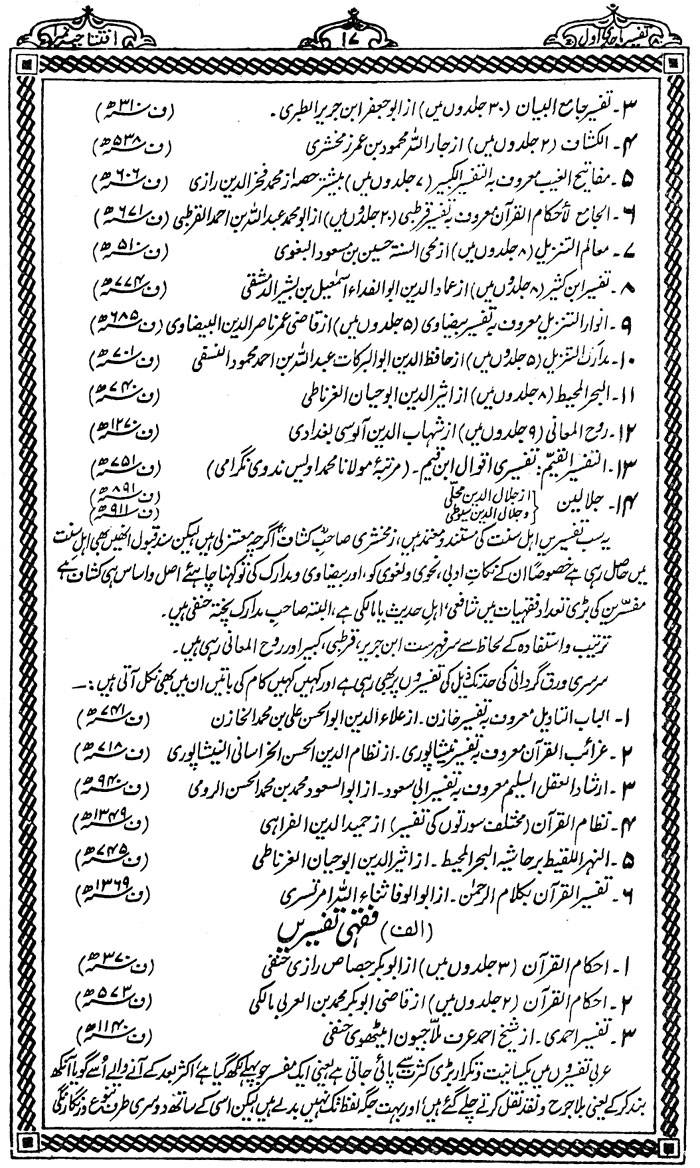 تفسیر ماجدی اول ۱۷ افتتاحیہ نمبر
۳۔ تفسیر جامع البیان (۳۰ جلدوں میں) از ابو جعفر ابن جریر الطبری۔ (ف ۳۱۰ھ)
۴۔ الکشاف (۲ جلدوں میں) از جار اللہ محمود بن عمر زمخشری (ف ۵۳۸ھ)
۵۔ مفاتیح الغیب معروف بہ التفسیر الکبیر (۷ جلدوں میں) بیشتر حصہ از محمد فخر الدین رازی (ف ۶۰۶ھ)
۶۔ الجامع لأحکام القرآن معروف بہ تفسیر قرطبی (۲۰ جلدوں میں) از ابو محمد عبد اللہ بن احمد القرطبی (ف ۶۷۱ھ)
۷۔ معالم التنزیل (۸ جلدوں میں) از محی السنۃ حسین بن مسعود البغوی (ف ۵۱۰ھ)
۸۔ تفسیر ابن کثیر (۸ جلدوں میں) از عماد الدین ابو الفداء اسمٰعیل بن بشیر الدمشقی (ف ۷۷۴ھ)
۹۔ انوار التنزیل معروف بہ تفسیر بیضاوی (۵ جلدوں میں) از قاضی عمر ناصر الدین البیضاوی (ف ۶۸۵ھ)
۱۰۔ مدارک التنزیل (۵ جلدوں میں) از حافظ الدین ابو البرکات عبد اللہ بن احمد محمود النسفی (ف ۷۰۱ھ)
۱۱۔ البحر المحیط (۸ جلدوں میں) از اثیر الدین ابو حیان الغرناطی (ف ۷۴۰ھ)
۱۲۔ روح المعانی (۹ جلدوں میں) از شہاب الدین آلوسی بغدادی (ف ۱۲۷۰ھ)
۱۳۔ التفسیر القیّم: تفسیری اقوال ابن قیم۔ (مرتبۂ مولانا محمد اویس ندوی نگرامی) (ف ۷۵۱ھ)
۱۴۔ جلالین { از جلال الدین محلّی (ف ۸۹۱ھ)
و جلال الدین سیوطی (ف ۹۱۱ھ)
یہ سب تفسیریں اہل سنت کی مستند و معتمد ہیں، زمخشری صاحب کشاف اگرچہ معتزلی ہیں لیکن سندِ قبول انھیں بھی اہل سنت
میں حاصل رہی ہے خصوصاً ان کے نکاتِ ادبی، نحوی و لغوی کو، اور بیضاوی و مدارک کی تو کہنا چاہئے اصل و اساس ہی کشاف ہے
مفسّرین کی بڑی تعداد فقہیات میں شافعی، اہل حدیث یا مالکی ہے، البتہ صاحب مدارک پختہ حنفی ہیں۔
ترتیب و استفادہ کے لحاظ سے سر فہرست ابن جریر، قرطبی، کبیر اور روح المعانی رہی ہیں۔
سرسری ورق گردانی کی حد تک ذیل کی تفسیروں پر بھی رہی ہے اور کہیں کہیں کام کی باتیں ان میں بھی نکل آتی ہیں:—
۱۔ الباب التاویل معروف بہ تفسیر خازن۔ از علاء الدین ابو الحسن علی بن محمد الخازن (ف ۷۴۱ھ)
۲۔ غرائب القرآن معروف بہ تفسیر نیشاپوری۔ از نظام الدین الحسن الخراسانی النیشاپوری (ف ۷۱۸ھ)
۳۔ ارشاد العقل السلیم معروف بہ تفسیر ابی سعود۔ از ابو السعود محمد بن محمد الحسن الرومی (ف ۹۴۰ھ)
۴۔ نظام القرآن (مختلف سورتوں کی تفسیر) از حمید الدین الفراہی (ف ۱۳۴۹ھ)
۵۔ النہر اللقیط بر حاشیہ البحر المحیط۔ از اثیر الدین ابو حیان الغرناطی (ف ۷۴۵ھ)
۶۔ تفسیر القرآن بکلام الرحمٰن۔ از ابو الوفا ثناء اللہ امرتسری (ف ۱۳۶۹ھ)
(الف) فقہی تفسیریں
۱۔ احکام القرآن (۳ جلدوں میں) از ابو بکر جصاص رازی حنفی (ف ۳۷۰ھ)
۲۔ احکام القرآن (۲ جلدوں میں) از قاضی ابو بکر محمد بن العربی مالکی (ف ۵۷۳ھ)
۳۔ تفسیر احمدی۔ از شیخ احمد عرف ملّا جیون امیٹھوی حنفی (ف ۱۱۴۰ھ)
عربی تفسیروں میں یکسانیت و تکرار بڑی کثرت سے پائی جاتی ہے یعنی ایک مفسر جو پہلے لکھ گیا ہے اکثر بعد کے آنے والے اُسے گویا آنکھ
بند کر کے یعنی بلا جرح و نقد نقل کرتے چلے گئے ہیں، اور بہت جگہ لفظ تک نہیں بدلے ہیں لیکن اسی کے ساتھ دوسری طرف تنوع و رنگارنگی